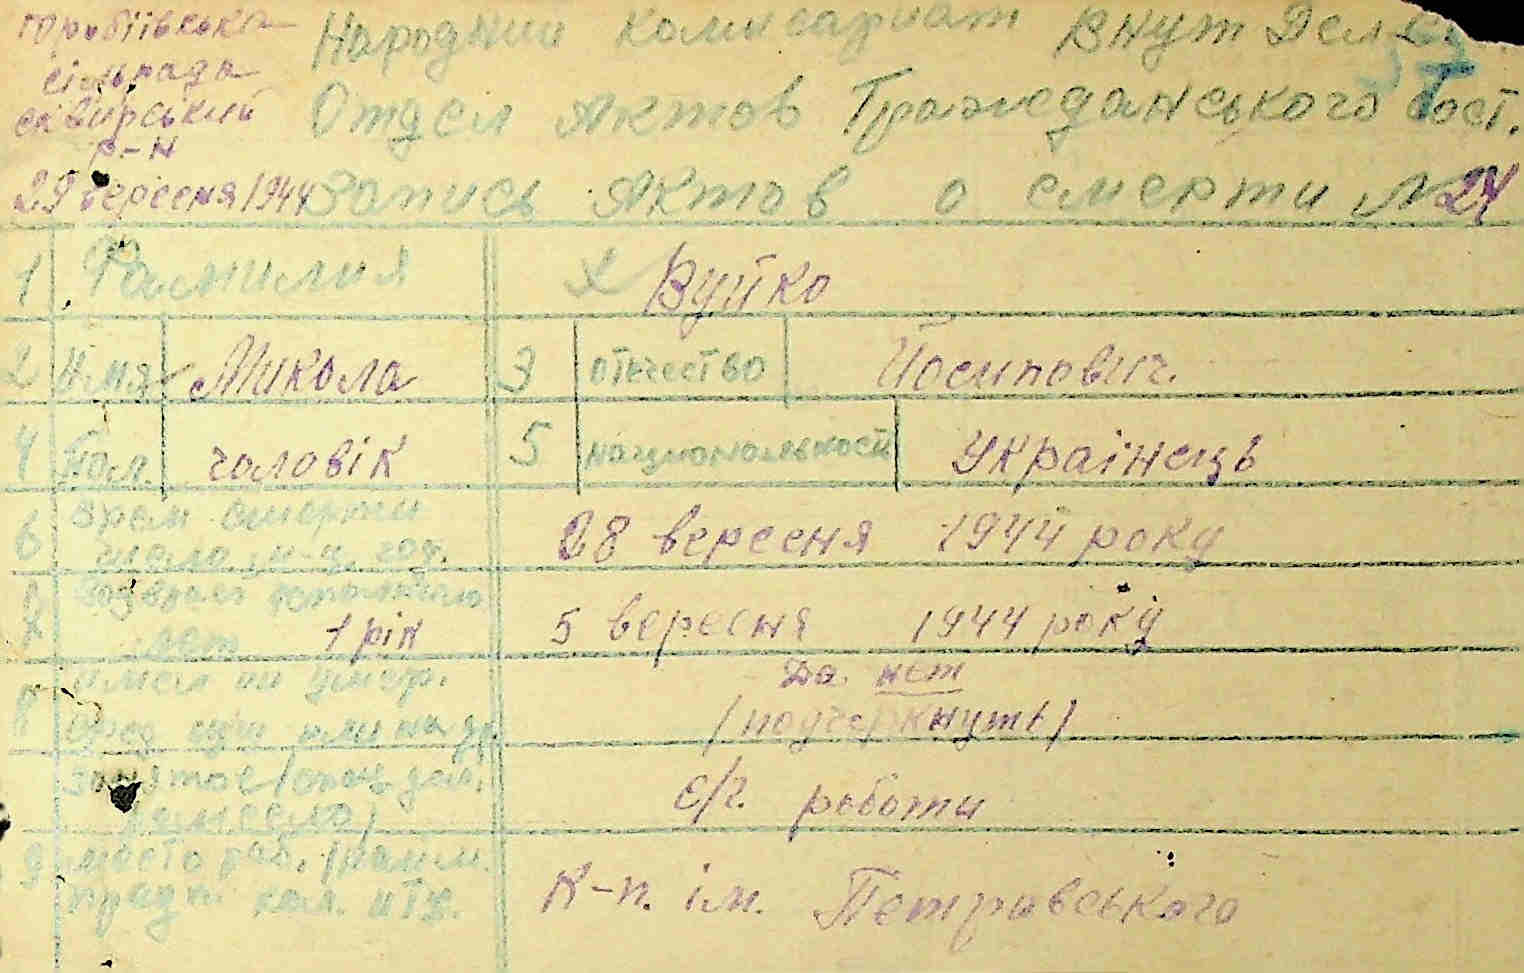 Горобіївська
сільрада
сквирський
р-н
29 вересня 1944
Народний комисариат Внут Дел
Отдел Актов Гражеданського Сост.
Запись Актов о смерти № 24
1 Фамилия Вуйко
2 Имя Микола 3 отчество Йосипович.
4 Пол. чоловік 5 националькости Українець
6 Врем смерти
число, м-ц, год. 28 вересня 1944 року
Возраст
лет 1 рік 5 вересня 1944 року
имел ли умер. Да. нет
/подчеркнуть/
занятое /
ремесло/ с/г. роботи
9 место раб.
К-п. ім. Петровського